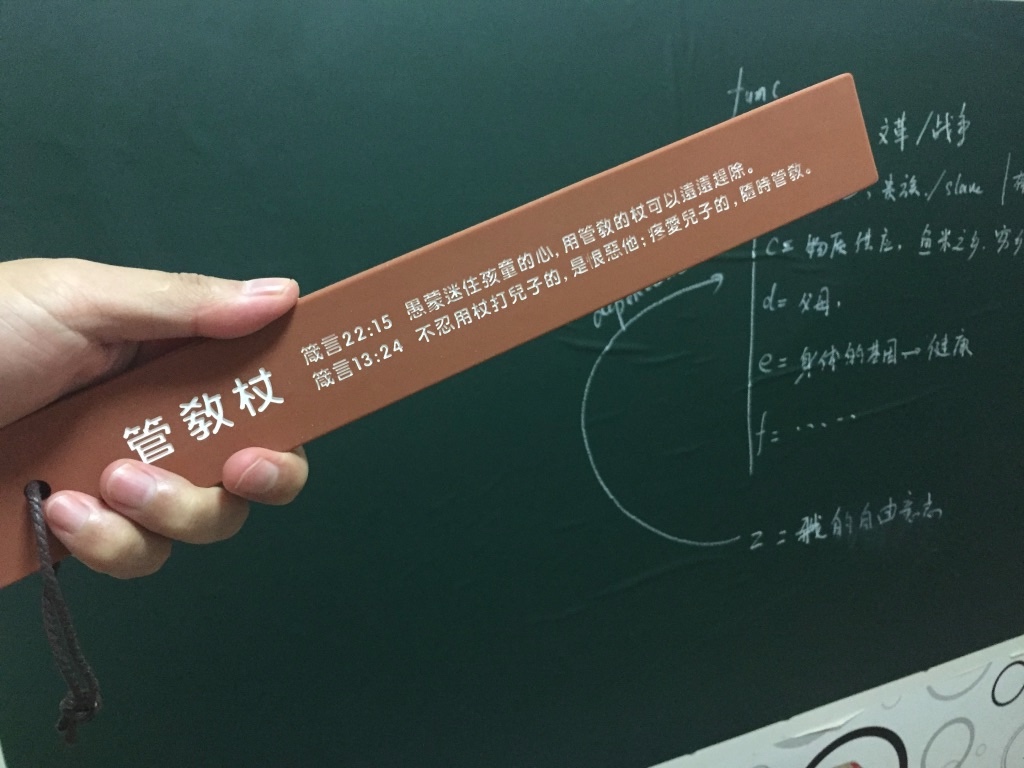 管教杖
箴言22:15 愚蒙迷住孩童的心,用管教的杖可以遠遠趕除。
箴言13:24 不忍用杖打兒子的,是恨惡他;疼愛兒子的,隨時管教。
func
文革/战争
贵族./slave
c= 物质供应. 鱼米之乡.
d= 父母.
e= 身体的基因→健康
f= ......
z = 我的自由意志